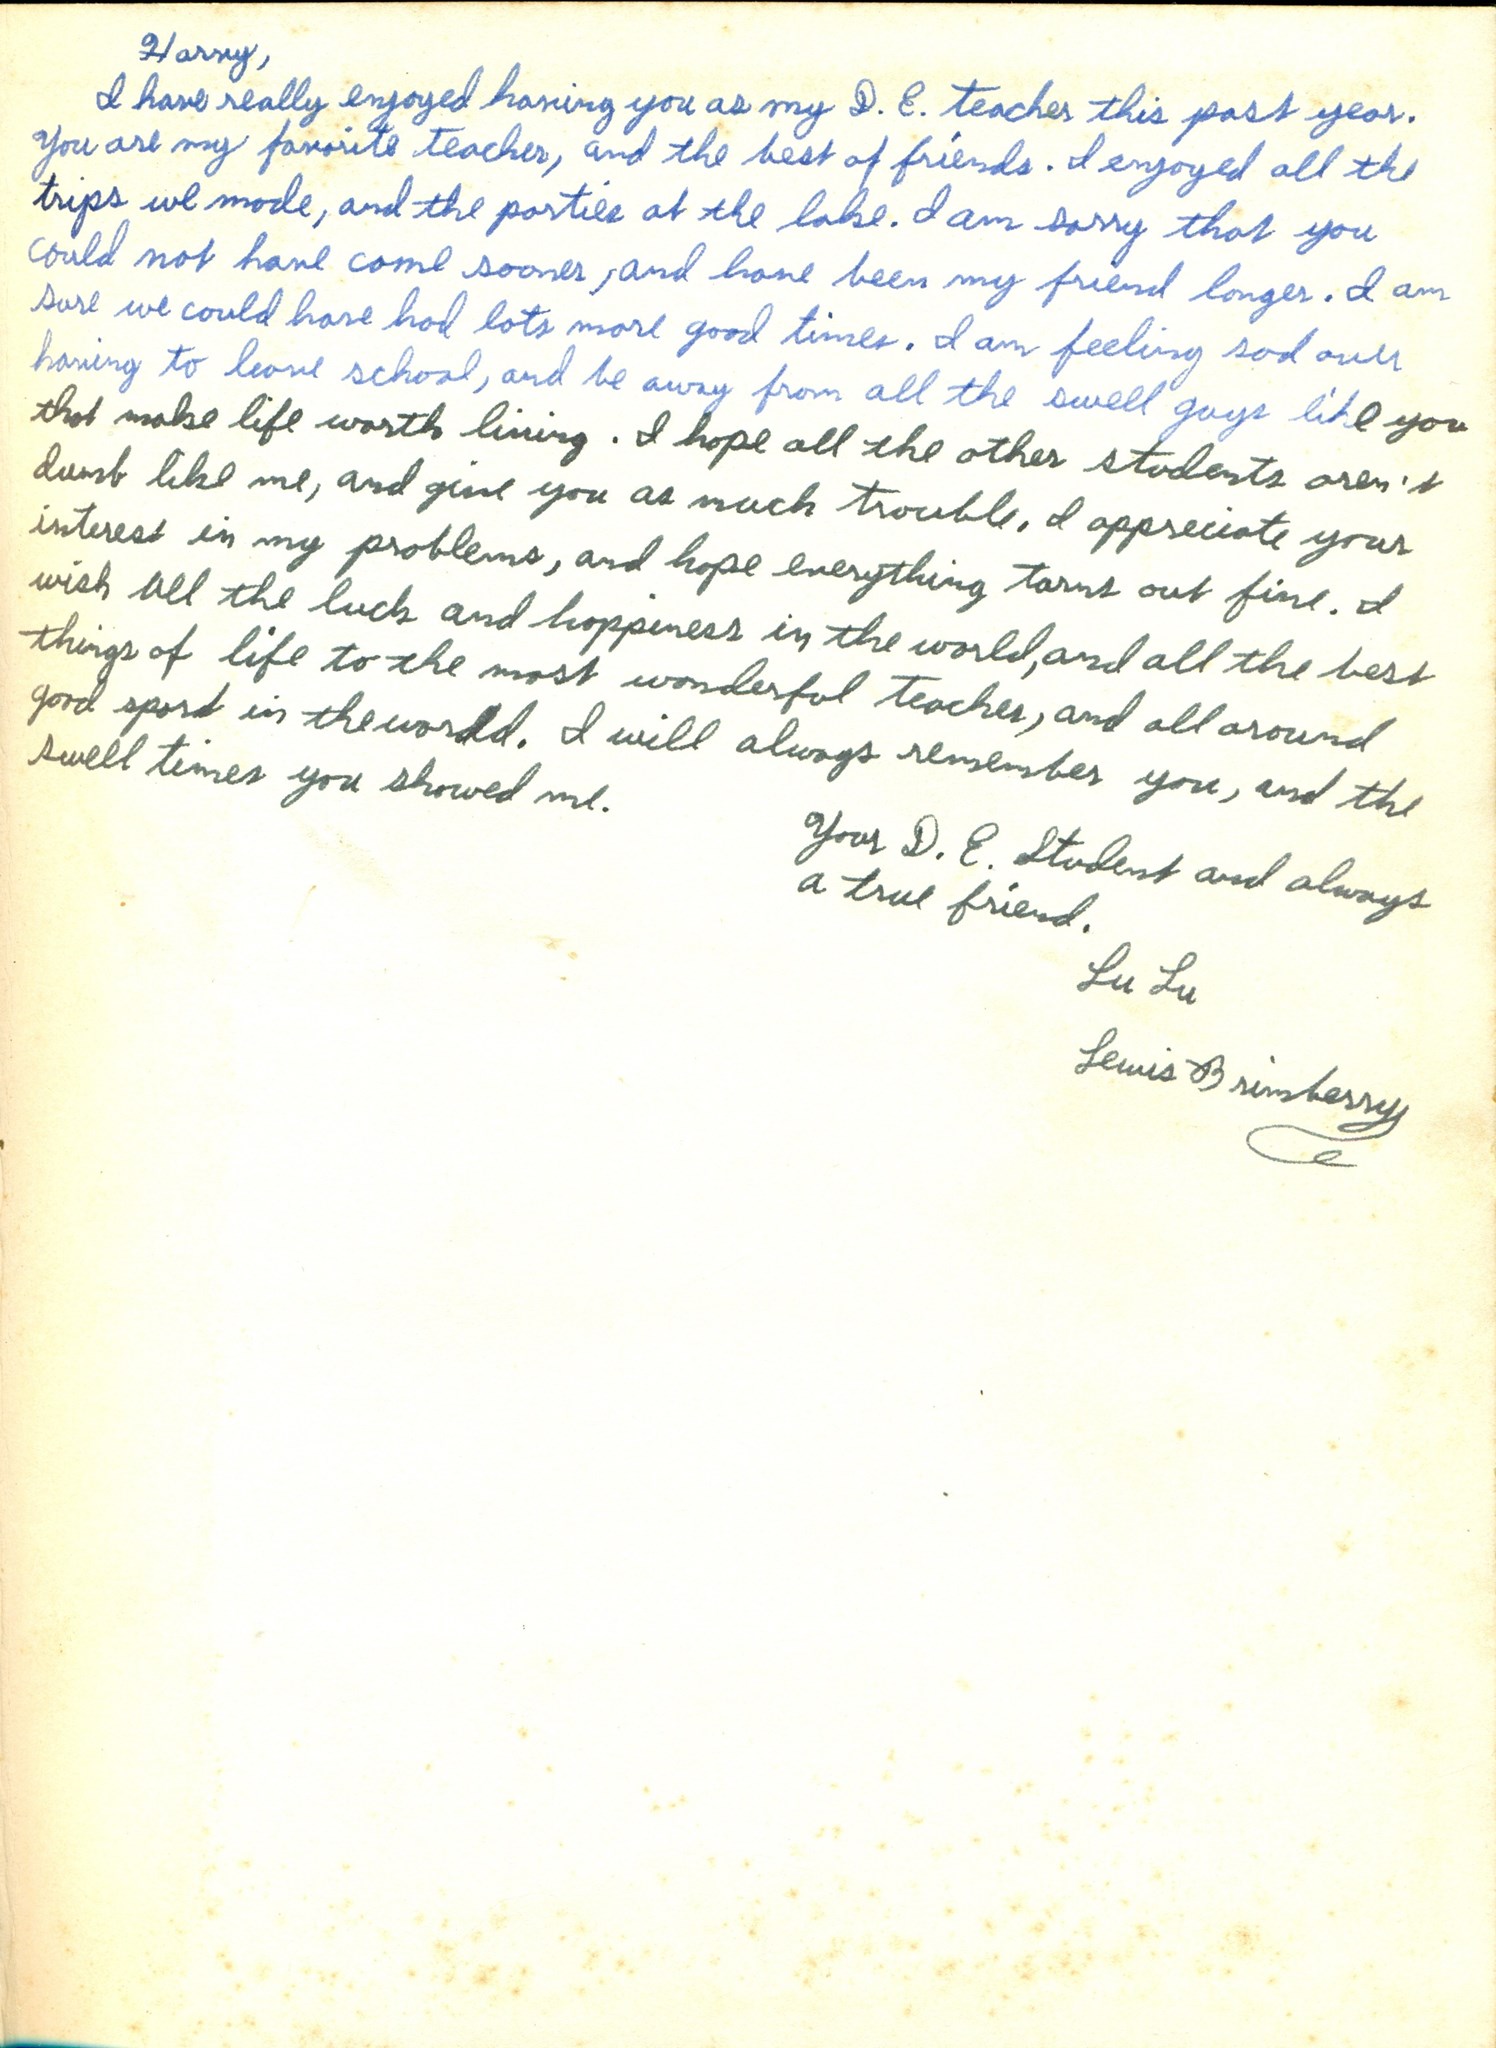 Harry,
I have really enjoyed having you as my D. E. teacher this past year.
You are my favorite teacher, and the best of friends. I enjoyed all the
trips we made, and the parties at the lake. I am sorry that you
could not have come sooner, and have been my friend longer. I am
sure we could have had lots more good times. I am feeling sad over
having to leave school, and be away from all the swell guys like you
that make life worth living. I hope all the other students aren't
dumb like me, and give you as much trouble. I appreciate your
interest in my problems, and hope everything turns out fine. I
wish all the luck and happiness in the world, and all the best
things of life to the most wonderful teacher, and all around
good sport in the world. I will always remember you, and the
swell times you showed me.
Your D. E. Student and always
a true friend.
Lu Lu
Lewis Brimberry